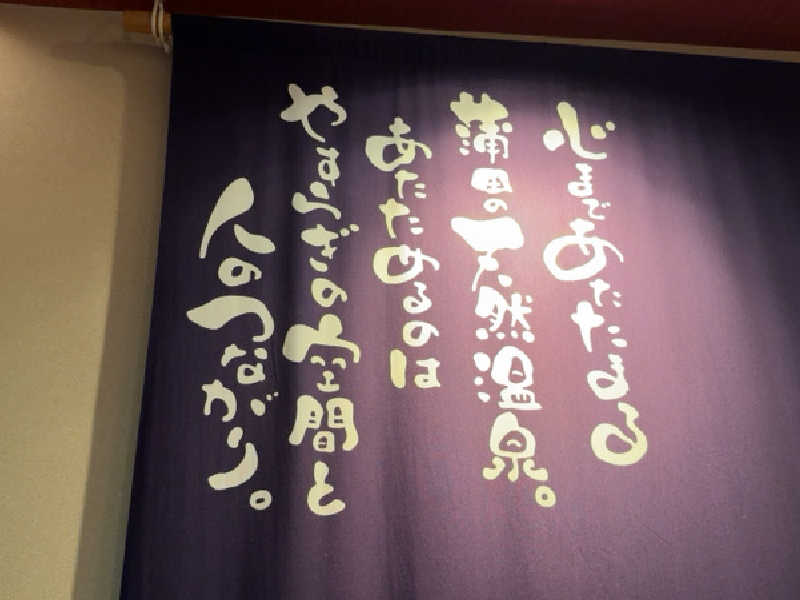 心まであたたまる
蒲田の天然温泉。
あたためるのは
やすらぎの空間と
人のつながり。